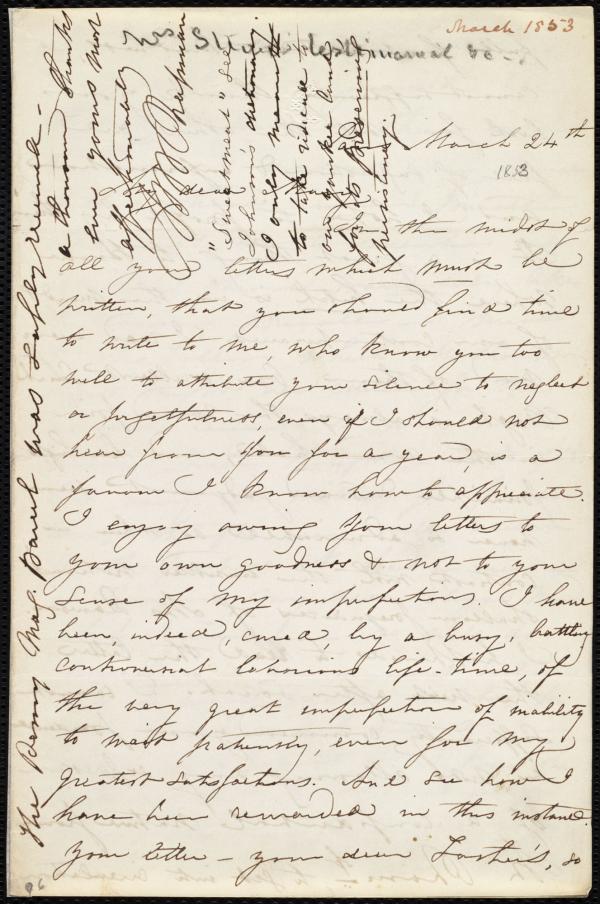 March 1853
Mrs S
March 24th
1853
My dear
In the midst of
all your letters which must be
written, that you should find time
to write to me, who know you too
well to attribute your silence to neglect
or forgetfulness, even if I should not
hear from you for a year, is a
favour I know how to appreciate.
I enjoy owing your letters to
your own goodness & not to your
sense of my imperfections. I have
been, indeed, cured, by a busy, battling
controversial laborious life-time, of
the very great imperfection of inability
to wait patiently, even for my
greatest satisfactions. And see how I
have been rewarded in this instance.
your letter – your dear so
96
The Penny Mag. Parcel was safely received –
a thousand thanks
Ever yours most
affectionately
M W Chapman
"Sweetmeat" See
Johnson's dictionary
I only meant
to take ridicule
our yankee land
for its
persistency.